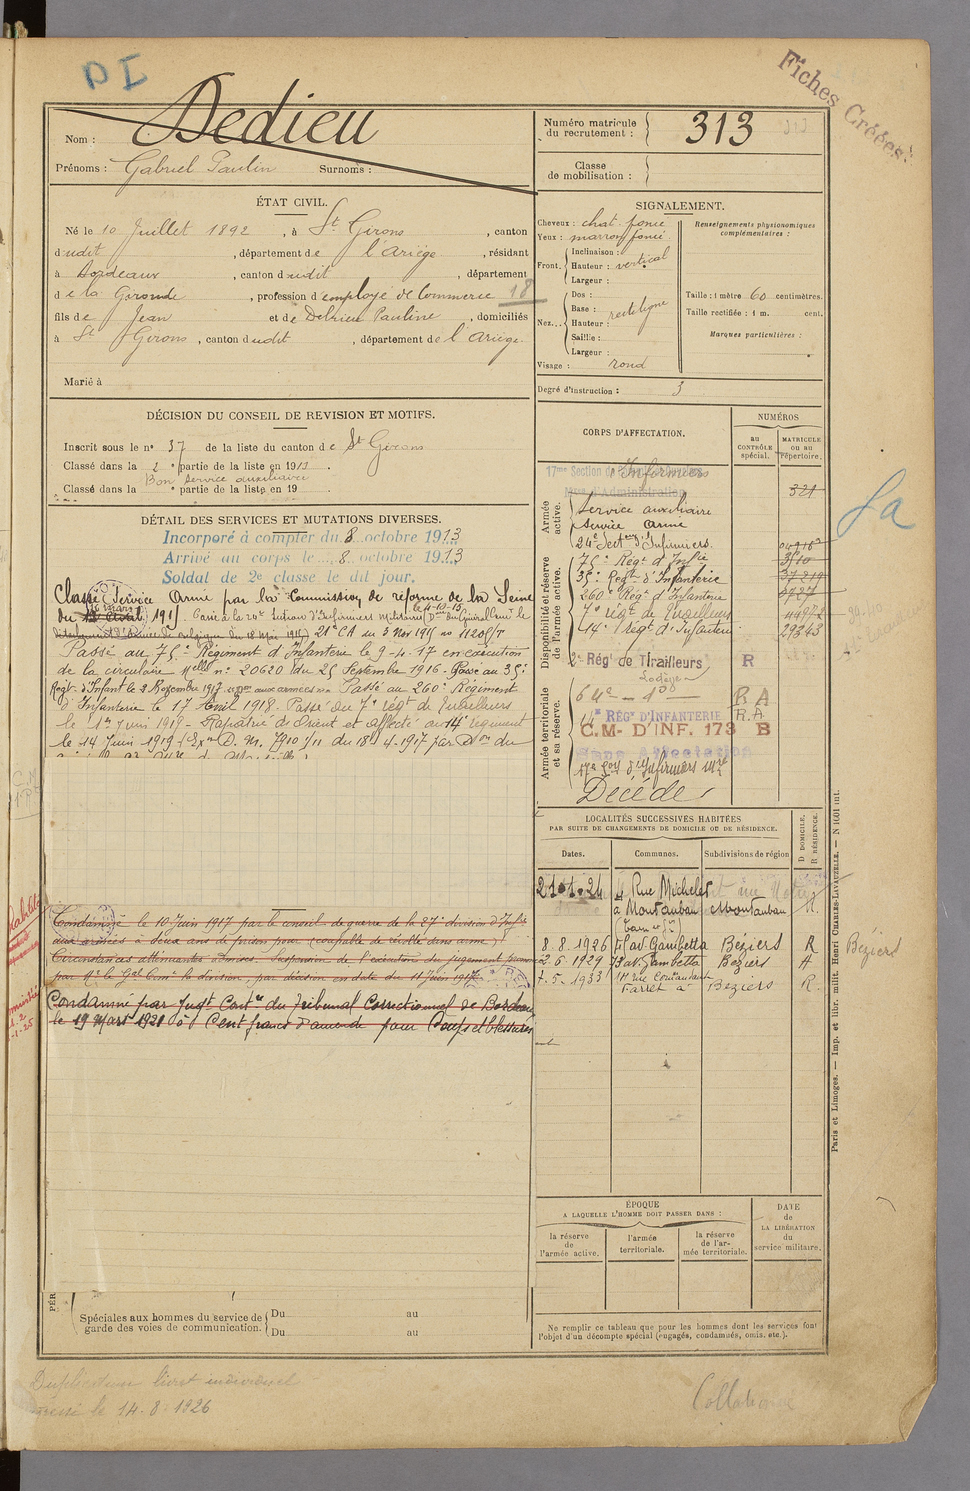 PI
Fiches Créées
Nom : Dedieu
Prénoms : Gabriel Paulin Surnoms :
Numéro matricule du recrutement : 313
Classe de mobilisation :
ÉTAT CIVIL.
Né le 10 Juillet 1892, à St Girons, canton
dudit, département de l'Ariège, résidant
à Bordeaux, canton dudit, département
de la Gironde, profession d'employé de Commerce 18
fils de Jean et de Delrieu Pauline, domiciliés
à St Girons, canton dudit, département de l'Ariège.
Marié à
SIGNALEMENT.
Cheveux : chat. foncé
Yeux : marron foncé
Front. Inclinaison :
Hauteur : vertical
Largeur :
Nez... Dos :
Base : rectiligne
Hauteur :
Saillie :
Largeur :
Visage : rond
Renseignements physionomiques complémentaires :
Taille : 1 mètre 60 centimètres.
Taille rectifiée : 1 m. cent.
Marques particulières :
Degré d'instruction : 3
DÉCISION DU CONSEIL DE REVISION ET MOTIFS.
Inscrit sous le no 37 de la liste du canton de St Girons
Classé dans la 2e partie de la liste en 1913.
Bon service auxiliaire
Classé dans la e partie de la liste en 19
DÉTAIL DES SERVICES ET MUTATIONS DIVERSES.
Incorporé à compter du 8 octobre 1913
Arrivé au corps le 8 octobre 1913
Soldat de 2e classe le dit jour.
Classé Service Armé par la Commission de réforme de la Seine
du 1915
21e CA du 3 Nov 1915 no 11205/T
Passé au 75e Régiment d'Infanterie le 9-4-17 en exécution
de la circulaire Melle no 20620 du 25 Septembre 1916 - Passé au 35e
Regt d'Infant le 2 Novembre 1917 aux armées Passé au 260e Régiment
d'Infanterie le 17 Avril 1918. Passé du 7e régt de Tirailleurs
le 1er Juin 1919 - Rapatrié d'Orient et affecté au 14e régiment
le 14 Juin 1919 (Exon D. M. 7910 1/11 du 18-4-1917 par Don du
Condamné le 10 Juin 1917 par le conseil de guerre de la 27e division d'Infie
aux armées à deux ans de prison pour (coupable de révolte sans arme)
Circonstances atténuantes admises. Suspension de l'exécution du jugement
par Mr le Gal Comt la division, par décision en date du 11 Juin 1917
Condamné par Jugt Contre du Tribunal Correctionnel de Bordeaux
le 19 Mars 1921 à Cent francs d'amende pour Coups et blessures
Spéciales aux hommes du service de garde des voies de communication.
Du au
Du au
CORPS D'AFFECTATION.
NUMÉROS
AU CONTRÔLE spécial.
MATRICULE OU AU répertoire.
Armée active.
17me Section
Infirmiers
321
Service auxiliaire
Service armé
24e Sect d'Infirmiers.
Disponibilité et réserve de l'armée active.
75e Régt d'Infie 3510
35e Regt d'Infanterie 37219
260e Régt d'Infanterie
7e régt de Tirailleurs
14e Régt d'Infanterie 27343
2e Régt de Tirailleurs R
Armée territoriale et sa réserve.
64e R A
14e RÉGt D'INFANTERIE R.A
C.M. D'INF. 173 B
Sans Affectation
17e Son d'Infirmiers mres
Décédé
Sa
LOCALITÉS SUCCESSIVES HABITÉES
PAR SUITE DE CHANGEMENTS DE DOMICILE OU DE RÉSIDENCE.
Dates. Communes. Subdivisions de région D DOMICILE. R RÉSIDENCE.
21-1-24 4 Rue Michelet à Montauban Montauban R.
8-8-1926 71 av. Gambetta Béziers R
2-6-1929 73 av. Gambetta Béziers R
7-5-1933 Béziers R
Béziers
ÉPOQUE
A LAQUELLE L'HOMME DOIT PASSER DANS :
la réserve de l'armée active.
l'armée territoriale.
la réserve de l'armée territoriale.
DATE de LA LIBÉRATION du service militaire.
Ne remplir ce tableau que pour les hommes dont les services font
l'objet d'un décompte spécial (engagés, condamnés, omis, etc.).
Paris et Limoges. — Imp. et libr. milit. Henri CHARLES-LAVAUZELLE. — N 1001 int.
Duplicata livret individuel
le 14-8-1926